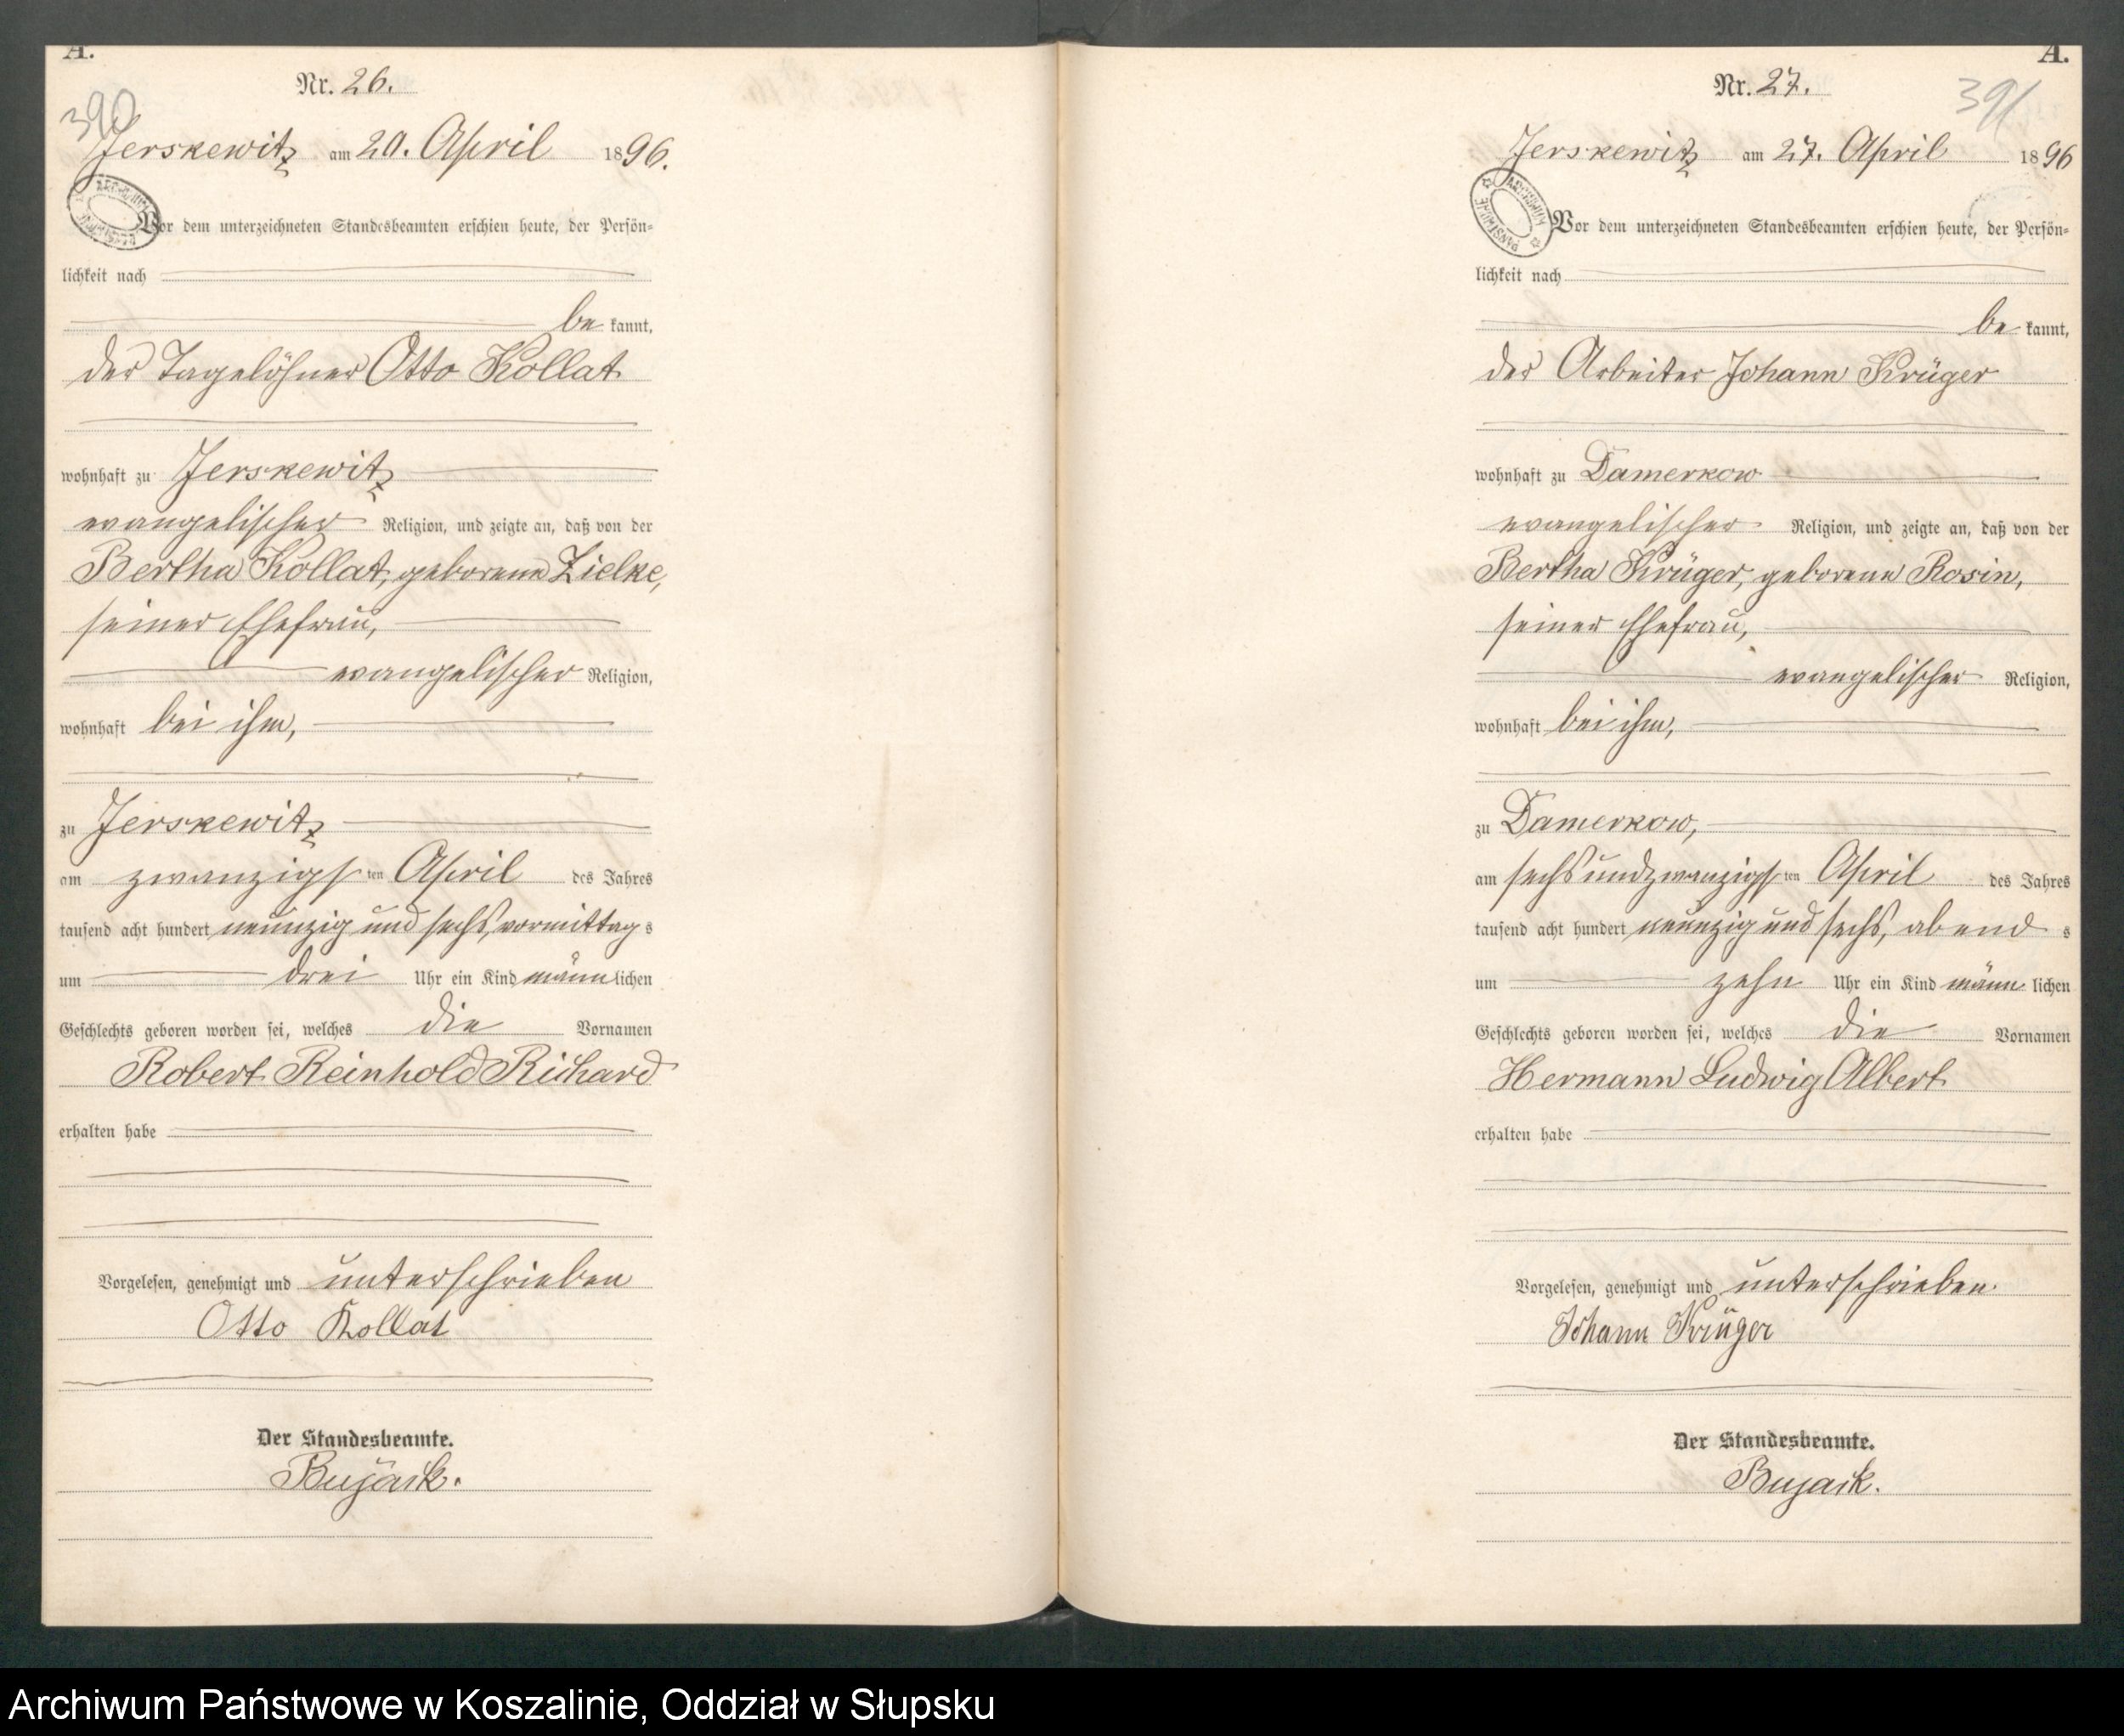 A.
Nr. 26.
390
Jerskewitz am 20. April 1896.
Vor dem unterzeichneten Standesbeamten erschien heute, der Persön-
lichkeit nach
be kannt,
der Tagelöhner Otto Kollat
wohnhaft zu Jerskewitz
evangelischer Religion, und zeigte an, daß von der
Bertha Kollat, geborene Zielke,
seiner Ehefrau,
evangelischer Religion,
wohnhaft bei ihm,
zu Jerskewitz
am zwanzigsten April des Jahres
tausend acht hundert neunzig und sechs, vormittags
um drei Uhr ein Kind männlichen
Geschlechts geboren worden sei, welches die Vornamen
Robert Reinhold Richard
erhalten habe
Vorgelesen, genehmigt und unterschrieben
Otto Kollat
Der Standesbeamte.
Bujack.
A.
Nr. 27.
391
Jerskewitz am 27. April 1896
Vor dem unterzeichneten Standesbeamten erschien heute, der Persön-
lichkeit nach
be kannt,
der Arbeiter Johann Krüger
wohnhaft zu Damerkow
evangelischer Religion, und zeigte an, daß von der
Bertha Krüger, geborene Rosin,
seiner Ehefrau,
evangelischer Religion,
wohnhaft bei ihm,
zu Damerkow,
am sechsundzwanzigsten April des Jahres
tausend acht hundert neunzig und sechs, abends
um zehn Uhr ein Kind männlichen
Geschlechts geboren worden sei, welches die Vornamen
Hermann Ludwig Albert
erhalten habe
Vorgelesen, genehmigt und unterschrieben.
Johann Krüger
Der Standesbeamte.
Bujack.
Archiwum Państwowe w Koszalinie, Oddział w Słupsku